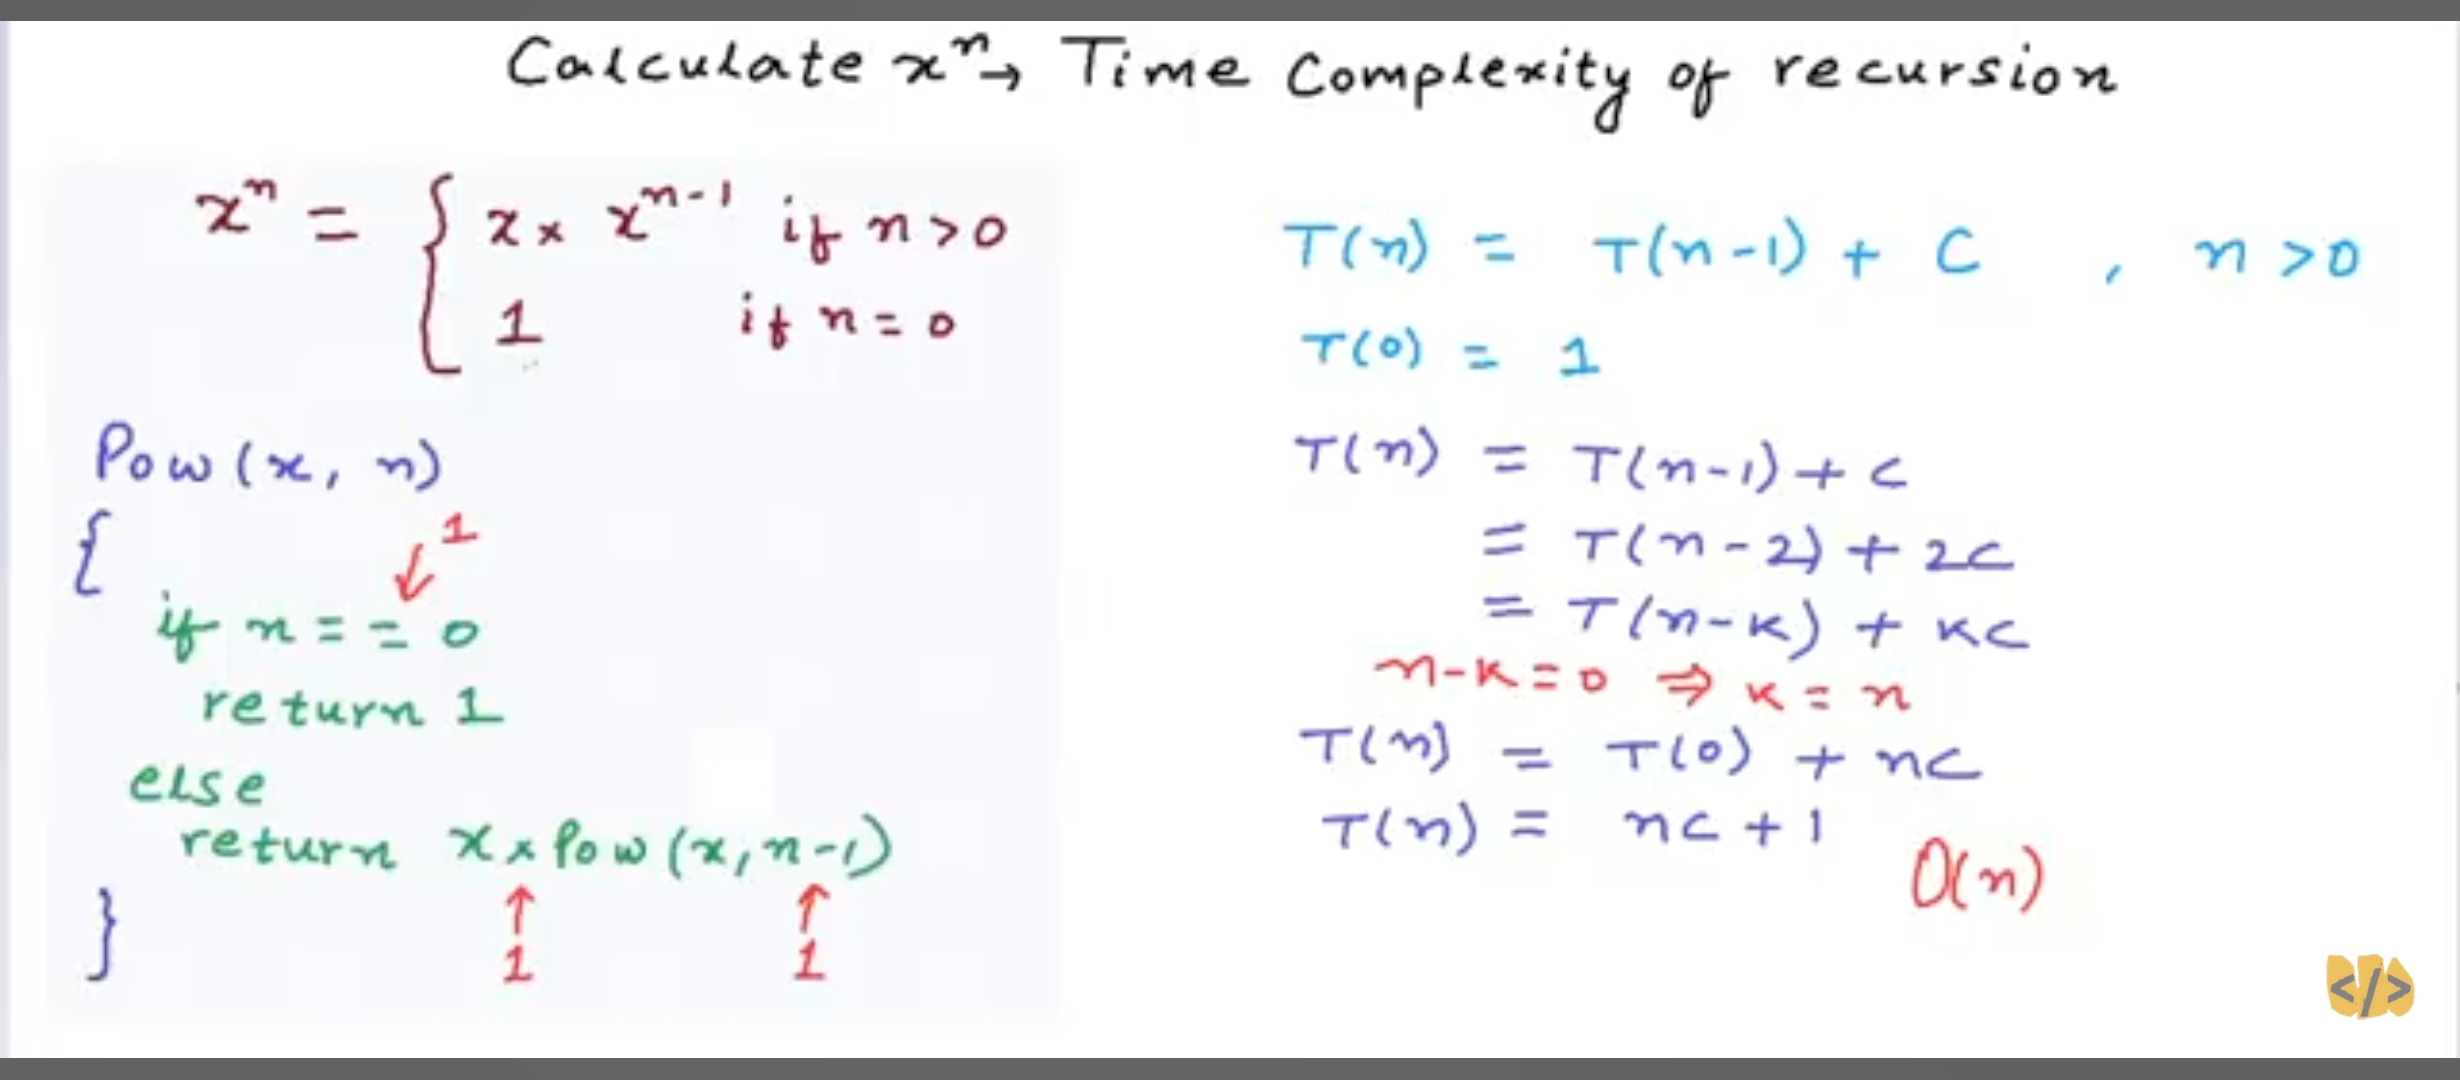 Calculate xⁿ → Time Complexity of recursion
xⁿ = { x × xⁿ⁻¹ if n > 0
1 if n = 0
Pow (x, n)
{
1
↓
if n = = 0
return 1
else
return x × Pow (x, n-1)
↑ ↑
1 1
}
T(n) = T(n-1) + C , n > 0
T(0) = 1
T(n) = T(n-1) + C
= T(n-2) + 2C
= T(n-K) + KC
n-K = 0 ⇒ K = n
T(n) = T(0) + nC
T(n) = nC + 1
O(n)
</>